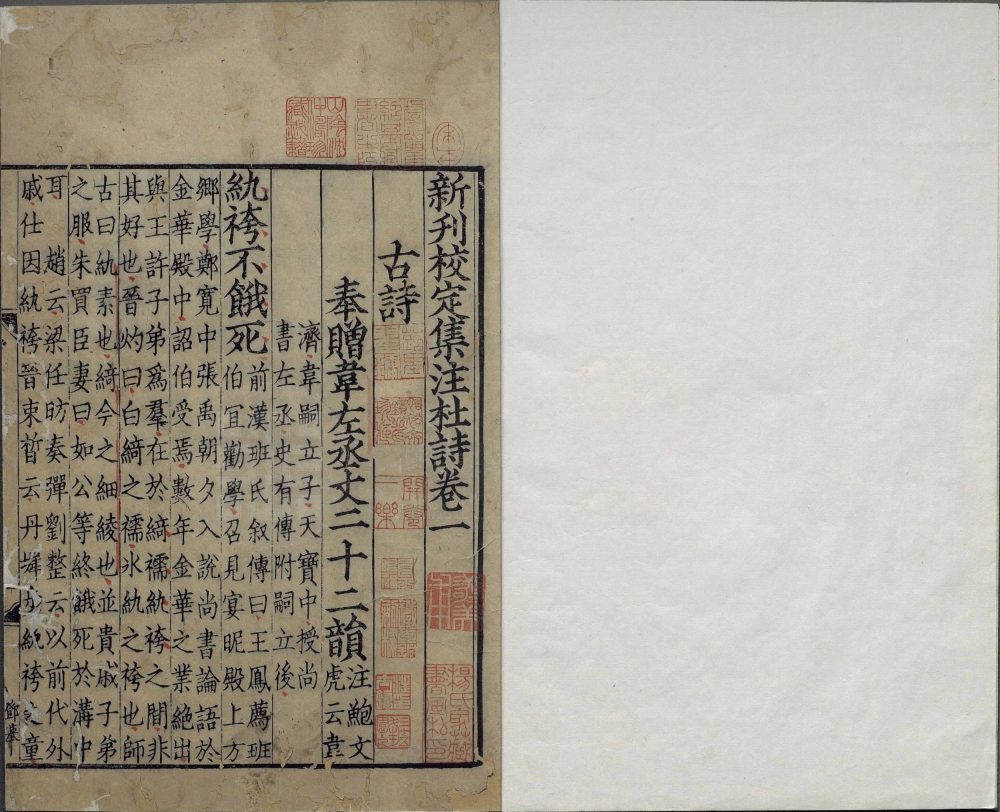 新刋校定集注杜詩卷一
古詩
奉贈韋左丞丈二十二韻
注鮑文
虎云韋
濟韋嗣立子天寶中授尚
書左丞史有傳附嗣立後
紈袴不餓死
前漢班氏叙傳曰王鳳薦班
伯冝勸學召見宴昵殿上方
鄉學鄭寬中張禹朝夕入說尚書論語於
金華殿中詔伯受焉數年金華之業絶出
與王許子弟爲羣在於綺襦紈袴之間非
其好也晉灼曰白綺之襦氷紈之袴也師
古曰紈素也綺今之細綾也並貴戚子弟
之服朱買臣妻曰如公等終餓死於溝中
耳 趙云梁任昉奏彈劉整云以前代外
戚仕因紈袴晉束晳云丹墀紈袴童
鄧舉